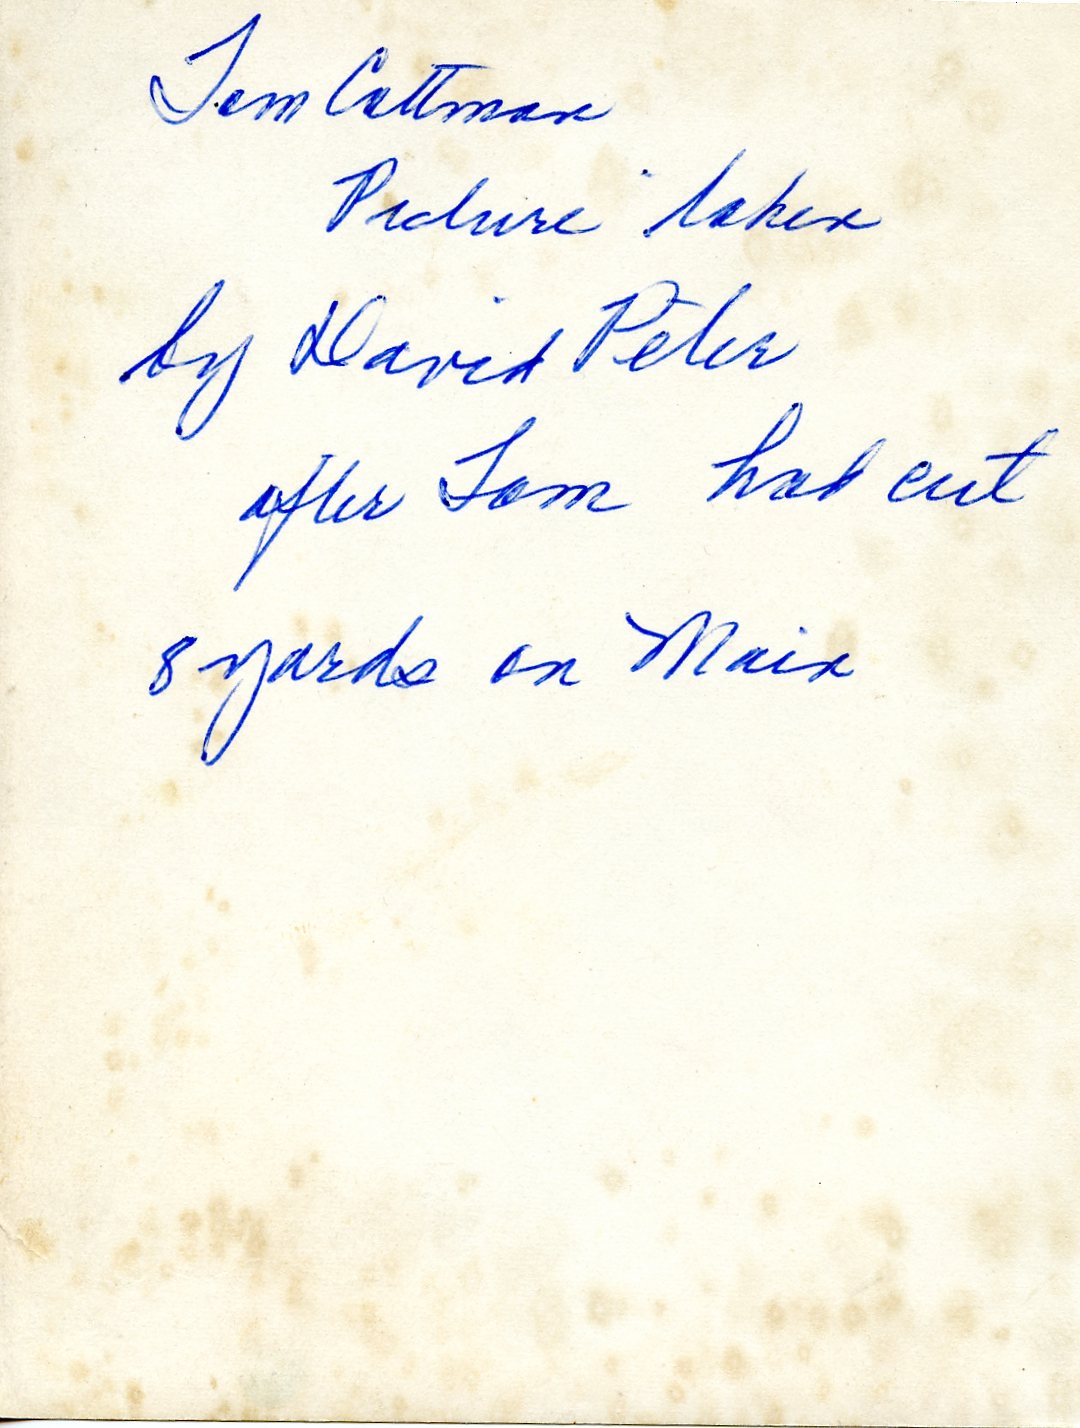 Tom Cottman
Picture taken
by David Peter
after Tom had cut
8 yards on Main